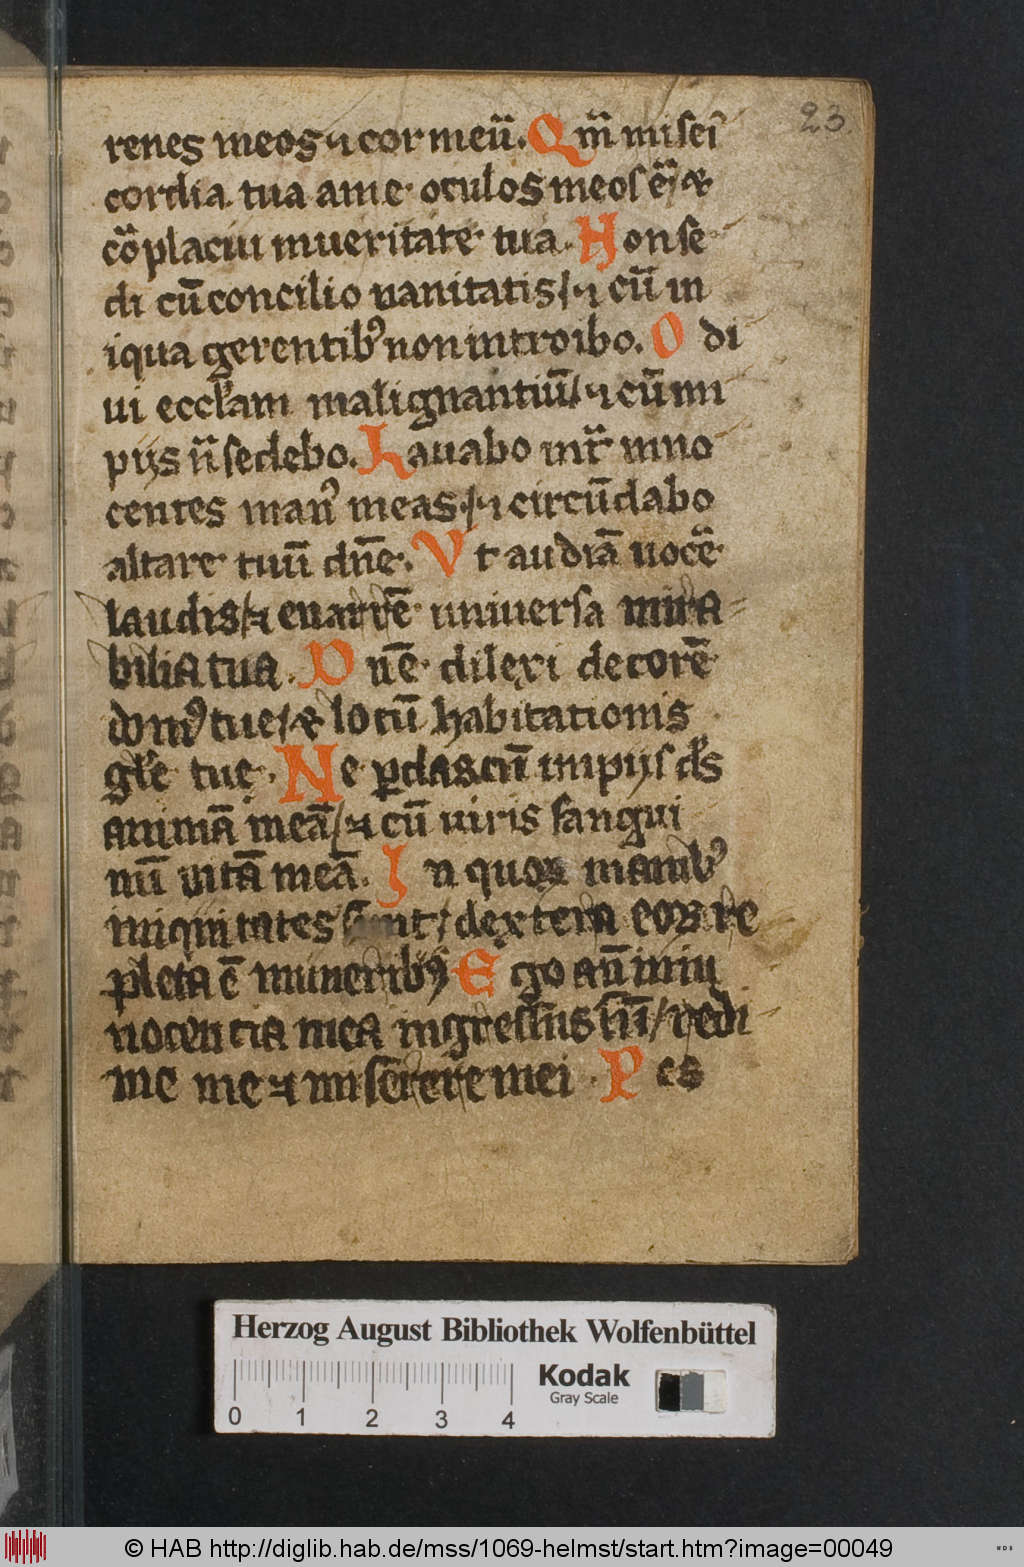 23
renes meos ⁊ cor meū. Qm̄ miſei
cordia tua ante oculos meos ē ⁊
cōplacui in ueritate tua. Non ſe
di cū concilio uanitatis / ⁊ cū in
iqua gerentibꝰ non introibo. O di
ui eccłam malignantiū / ⁊ cū im
pijs n̄ ſedebo. Lauabo int̄ inno
centes manꝰ meas. / ⁊ circūdabo
altare tuū dn̄e. Vt audiā uocē
laudis / ⁊ enarrē uniuerſa mira=
bilia tua. D n̄e dilexi decorē
domꝰ tue / ⁊ locū habitationis
głe tuę. Ne ꝑdas cū impijs ds̄
animā meā / ⁊ cū uiris ſangui
nū uitā meā. I n quoꝝ manibꝰ
iniquitates ſunt / dextera eoꝝ re
pleta ē muneribꝰ E go aū in in
nocentia mea ingreſſus ſū / redi
me me ⁊ miſerere mei. P es
Herzog August Bibliothek Wolfenbüttel
Kodak
Gray Scale
0 1 2 3 4
© HAB http://diglib.hab.de/mss/1069-helmst/start.htm?image=00049